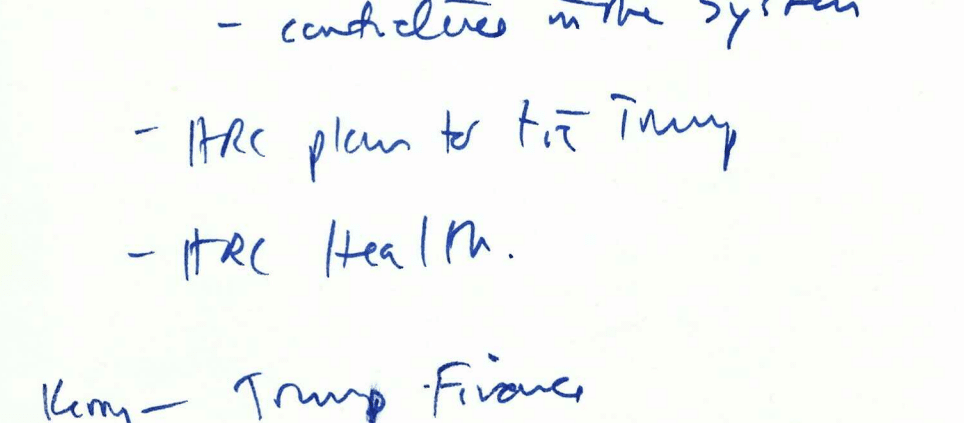 - candidates in the System
- HRC plan to tie Trump
- HRC Health.
Kerry - Trump Finance